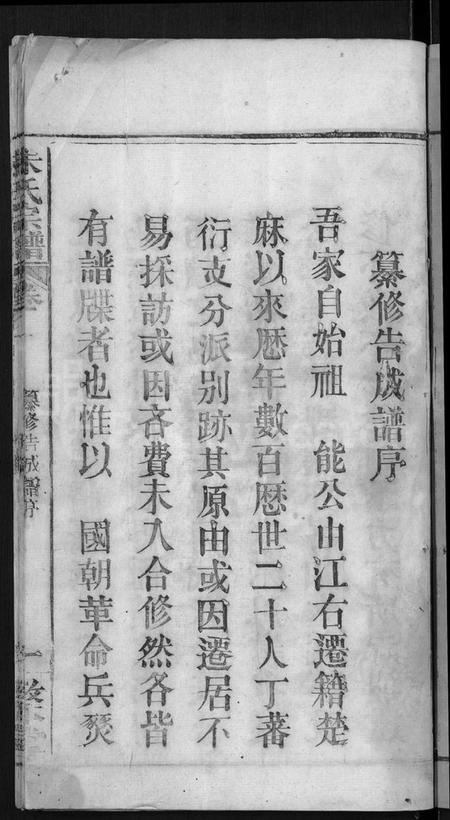 纂修告成譜序
吾家自始祖　能公由江右遷籍楚
麻以來歷年數百歷世二十人丁蕃
衍支分派别跡其原由或因遷居不
易採訪或因吝費未入合修然各皆
有譜牒者也惟以　國朝革命兵燹
朱氏宗譜
卷
纂修告成譜序
一